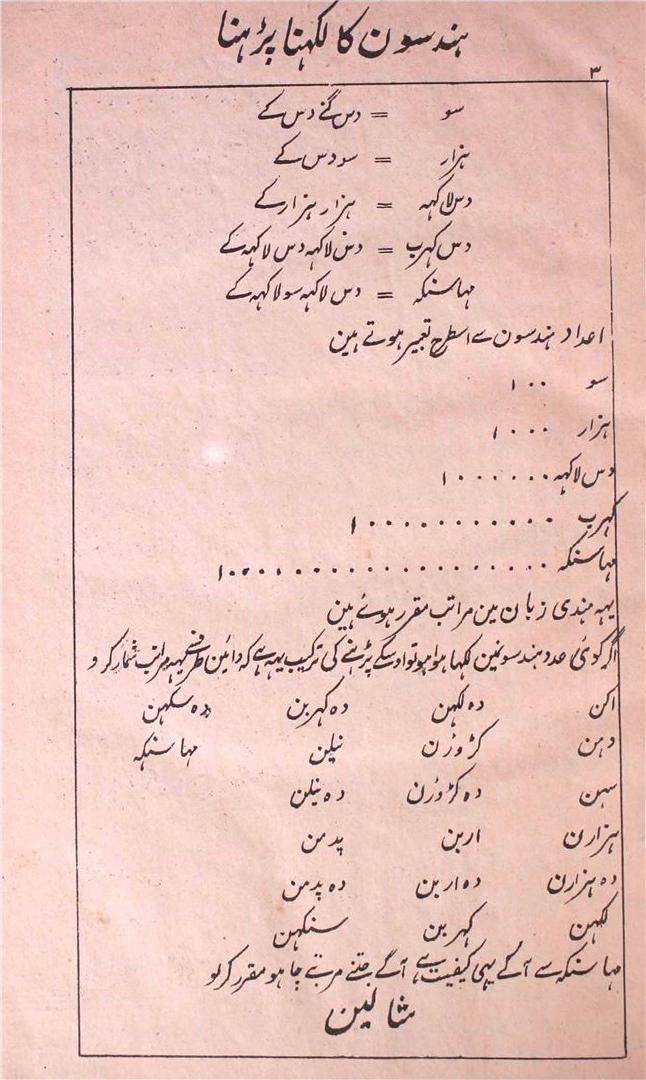 ہندسون کا لکہنا پڑہنا
۳
سو = دس گنے دس کے
ہزار = سو دس کے
دس لاکہہ = ہزار ہزار کے
دس کہرب = دس لاکہہ دس لاکہہ کے
مہاسنکہ = دس لاکہہ سو لاکہہ کے
اعداد ہندسون سے اسطرح تعبیر ہوتے ہین
سو ۱۰۰
ہزار ۱۰۰۰
دس لاکہہ ۱۰۰۰۰۰۰
کہرب ۱۰۰۰۰۰۰۰۰۰۰۰
مہاسنکہ
یہہ ہندی زبان مین مراتب مقرر ہوئے ہین
اگر کوئی عدد ہندسونمین لکہا ہوا ہو تو اوسکے پڑہنے کی ترکیب یہہ ہے کہ دائین طرف سے یہہ مراتب شمار کرو
اکن دہ لکہن دہ کہربن دہ سکہن
دہن کڑوڑن نیلن مہاسنکہ
سہن دہ کڑوڑن دہ نیلن
ہزارن اربن پدمن
دہ ہزارن دہ اربن دہ پدمن
لکہن کہربن سنکہن
مہاسنکہ سے آگے یہی کیفیت ہے آگے جتنے مرتبے چاہو مقرر کر لو
مثالین